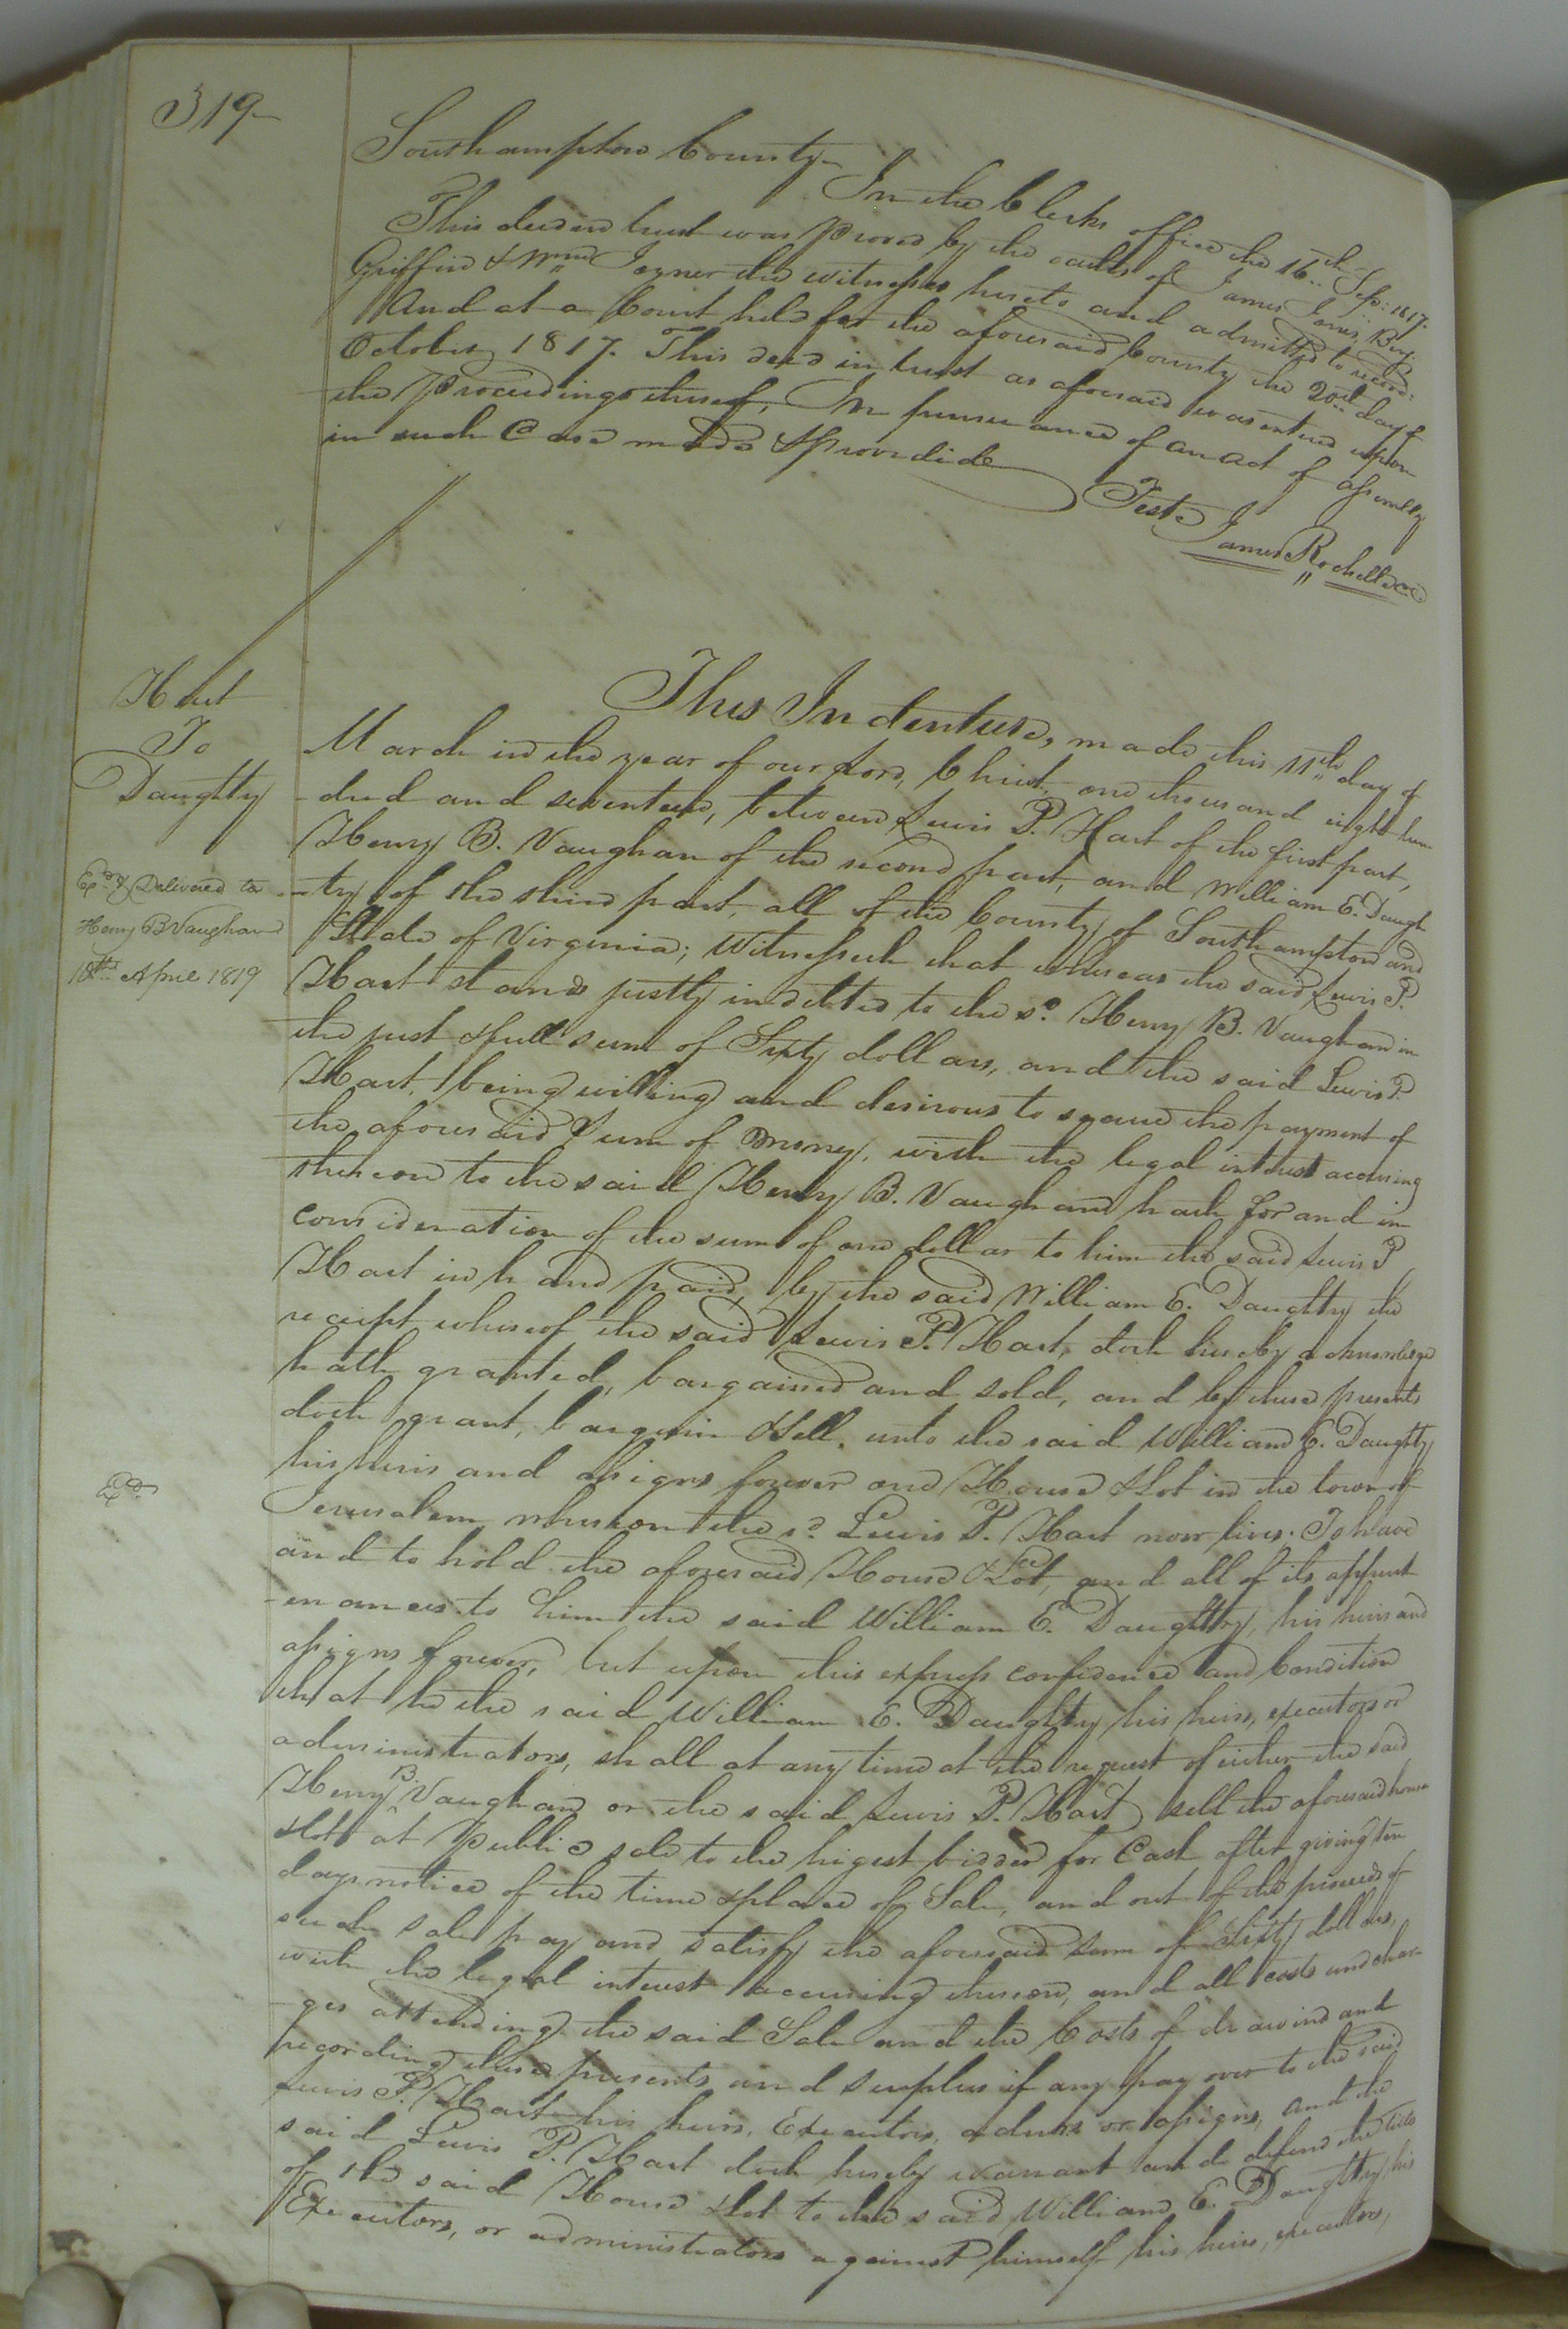 319
Southampton County
In the Clerks office the 16th Sep: 1817.
This deed in trust was proved by the oaths of James Jones, Benj.
Griffin & Wm Joyner the witnesses hereto and admitted to record.
And at a Court held for the aforesaid County the 20th day of
October 1817. This deed in trust as aforesaid was entered upon
the proceedings thereof, In pursuance of an act of assembly
in such Case made & provided
Teste James Rochelle
Hart
To
Daughtry
Exd & Delivered to
Henry B Vaughan
18th April 1819
This Indenture, made this 11th day of
March in the year of our Lord, Christ, one thousand eight hun
dred and seventeen, between Lewis P. Hart of the first part,
Henry B. Vaughan of the second part, and William E. Daugh
-try of the third part, all of the County of Southampton and
State of Virginia; Witnesseth that whereas the said Lewis P.
Hart stands justly indebted to the sd. Henry B. Vaughan in
the just & full sum of Sixty dollars, and the said Lewis P.
Hart, being willing and desirous to secure the payment of
the aforesaid Sum of money, with the legal interest accruing
thereon to the said Henry B. Vaughan hath for and in
consideration of the sum of one dollar to him the said Lewis P
Hart in hand paid, by the said William E. Daughtry the
receipt whereof the said Lewis P. Hart, doth hereby acknowledge
hath granted, bargained and sold, and by these presents
doth grant, bargain & sell, unto the said William E. Daughtry
his heirs and assigns forever one House & lot in the town of
Exd
Jerusalem whereon the sd. Lewis P. Hart now lives. To have
and to hold the aforesaid House & Lot, and all of its appurt
-enances to him the said William E. Daughtry, his heirs and
assigns forever, but upon this express confidence and Condition
that he the said William E. Daughtry, his heirs, executors or
administrators, shall at any time at the request of either the said
Henry B. Vaughan or the said Lewis P. Hart sell the aforesaid house
& lot at public sale to the higest bidder for Cash after giving ten
days notice of the time & place of Sale, and out of the proceeds of
such sale pay and satisfy the aforesaid sum of Sixty dollars,
with the legal interest accruing thereon, and all costs and char-
-ges attending the said Sale and the Costs of drawing and
recording these presents and surplus if any pay over to the said
Lewis P. Hart his heirs, Executors, admrs or assigns, and the
said Lewis P. Hart doth hereby warrant and defend the title
of the said House & lot to the said William E. Daughtry, his
Executors, or administrators against himself his heirs, executors,